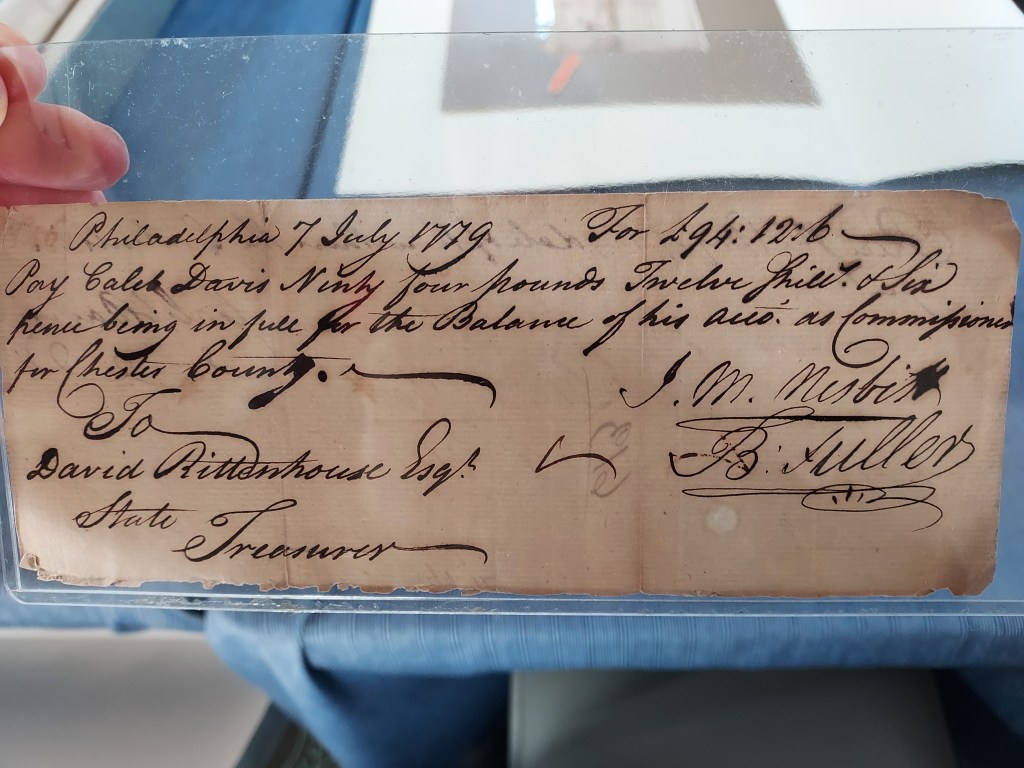 Philadelphia 7 July 1779 For £94:12:6
Pay Caleb Davis Ninty four pounds Twelve Shill.s & Six
pence being in full for the Balance of his acco.t as Commissioner
for Chester County.
To
David Rittenhouse Esq.r
State
Treasurer
J. M. Nesbitt
B: Fuller